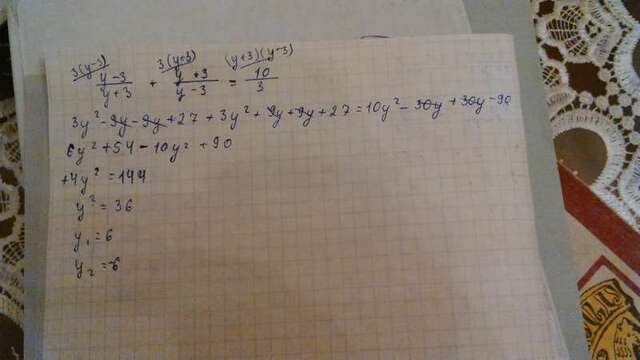 3(y-3) 3(y+3) (y+3)(y-3)
y-3/y+3 + y+3/y-3 = 10/3
3y² - 9y - 9y + 27 + 3y² + 9y + 9y + 27 = 10y² - 30y + 30y - 90
6y² + 54 - 10y² + 90
+4y² = 144
y² = 36
y₁ = 6
y₂ = -6